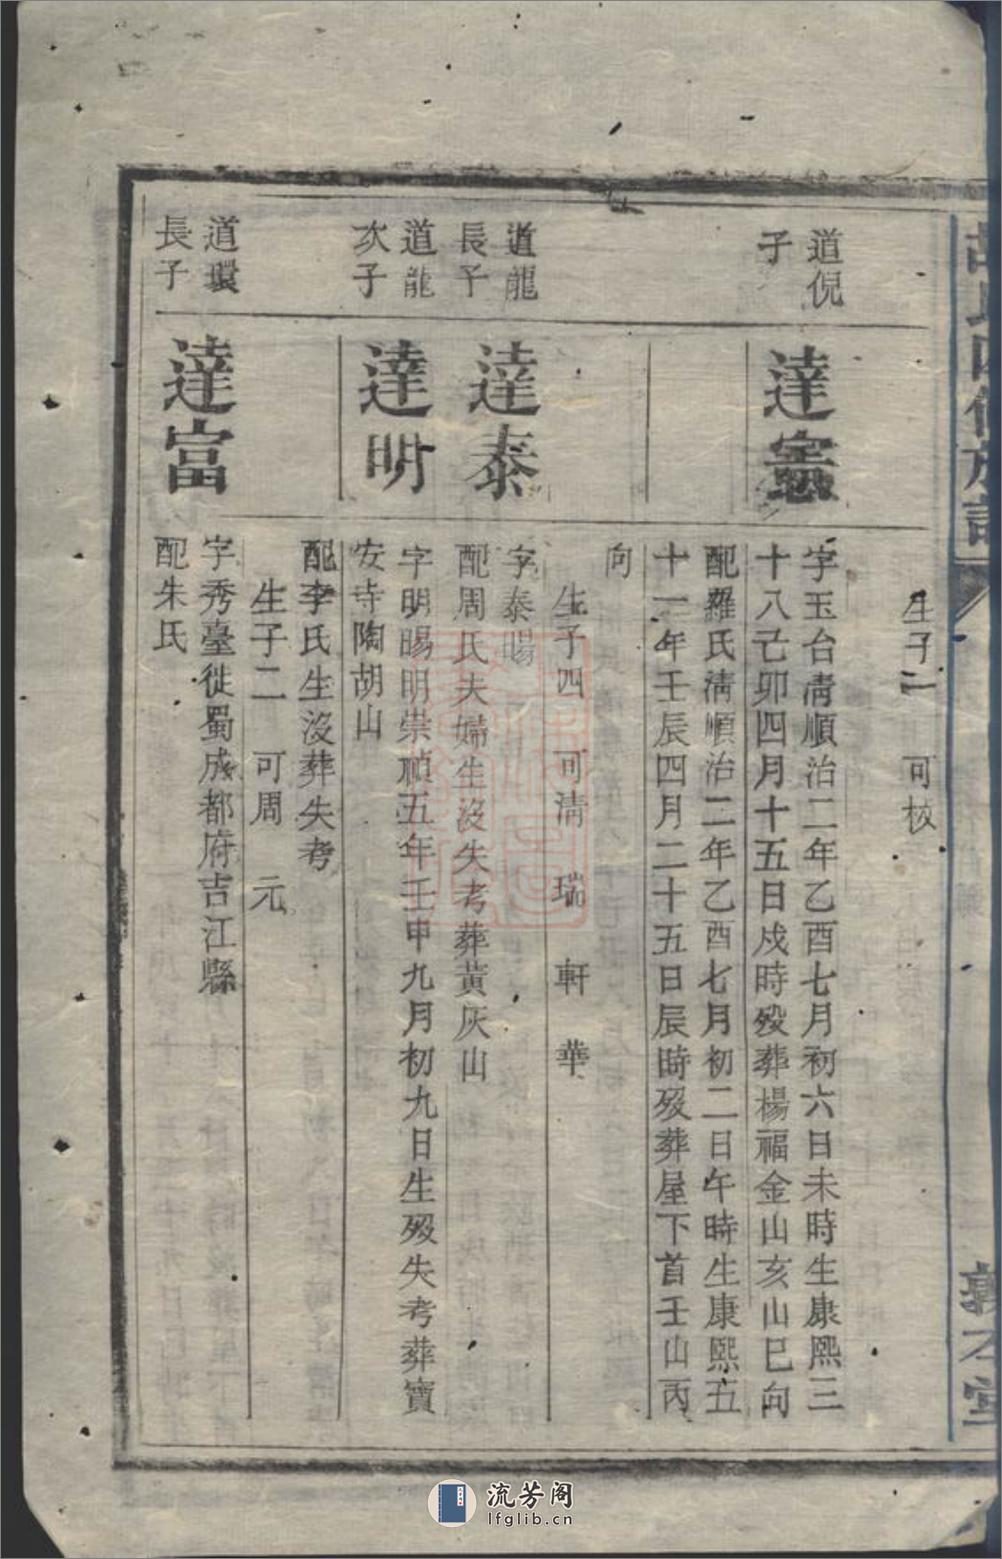 生子一　可权
道倪
子
達憲
字玉台清順治二年乙酉七月初六日未時生康熙三
十八己卯四月十五日戍時殁葬楊福金山亥山巳向
配羅氏清順治二年乙酉七月初二日午時生康熙五
十一年壬辰四月二十五日辰時殁葬屋下首壬山丙
向
生子四　可清　瑞　軒　華
道龍
長子
達泰
字泰暘
配周氏夫婦生沒失考葬黃灰山
道龍
次子
達明
字明暘明崇禎五年壬申九月初九日生殁失考葬寶
安寺陶胡山
配李氏生沒葬失考
生子二　可周　元
道環
長子
達富
字秀臺徙蜀成都府吉江縣
配朱氏
敦本堂
流芳阁
lfglib.cn